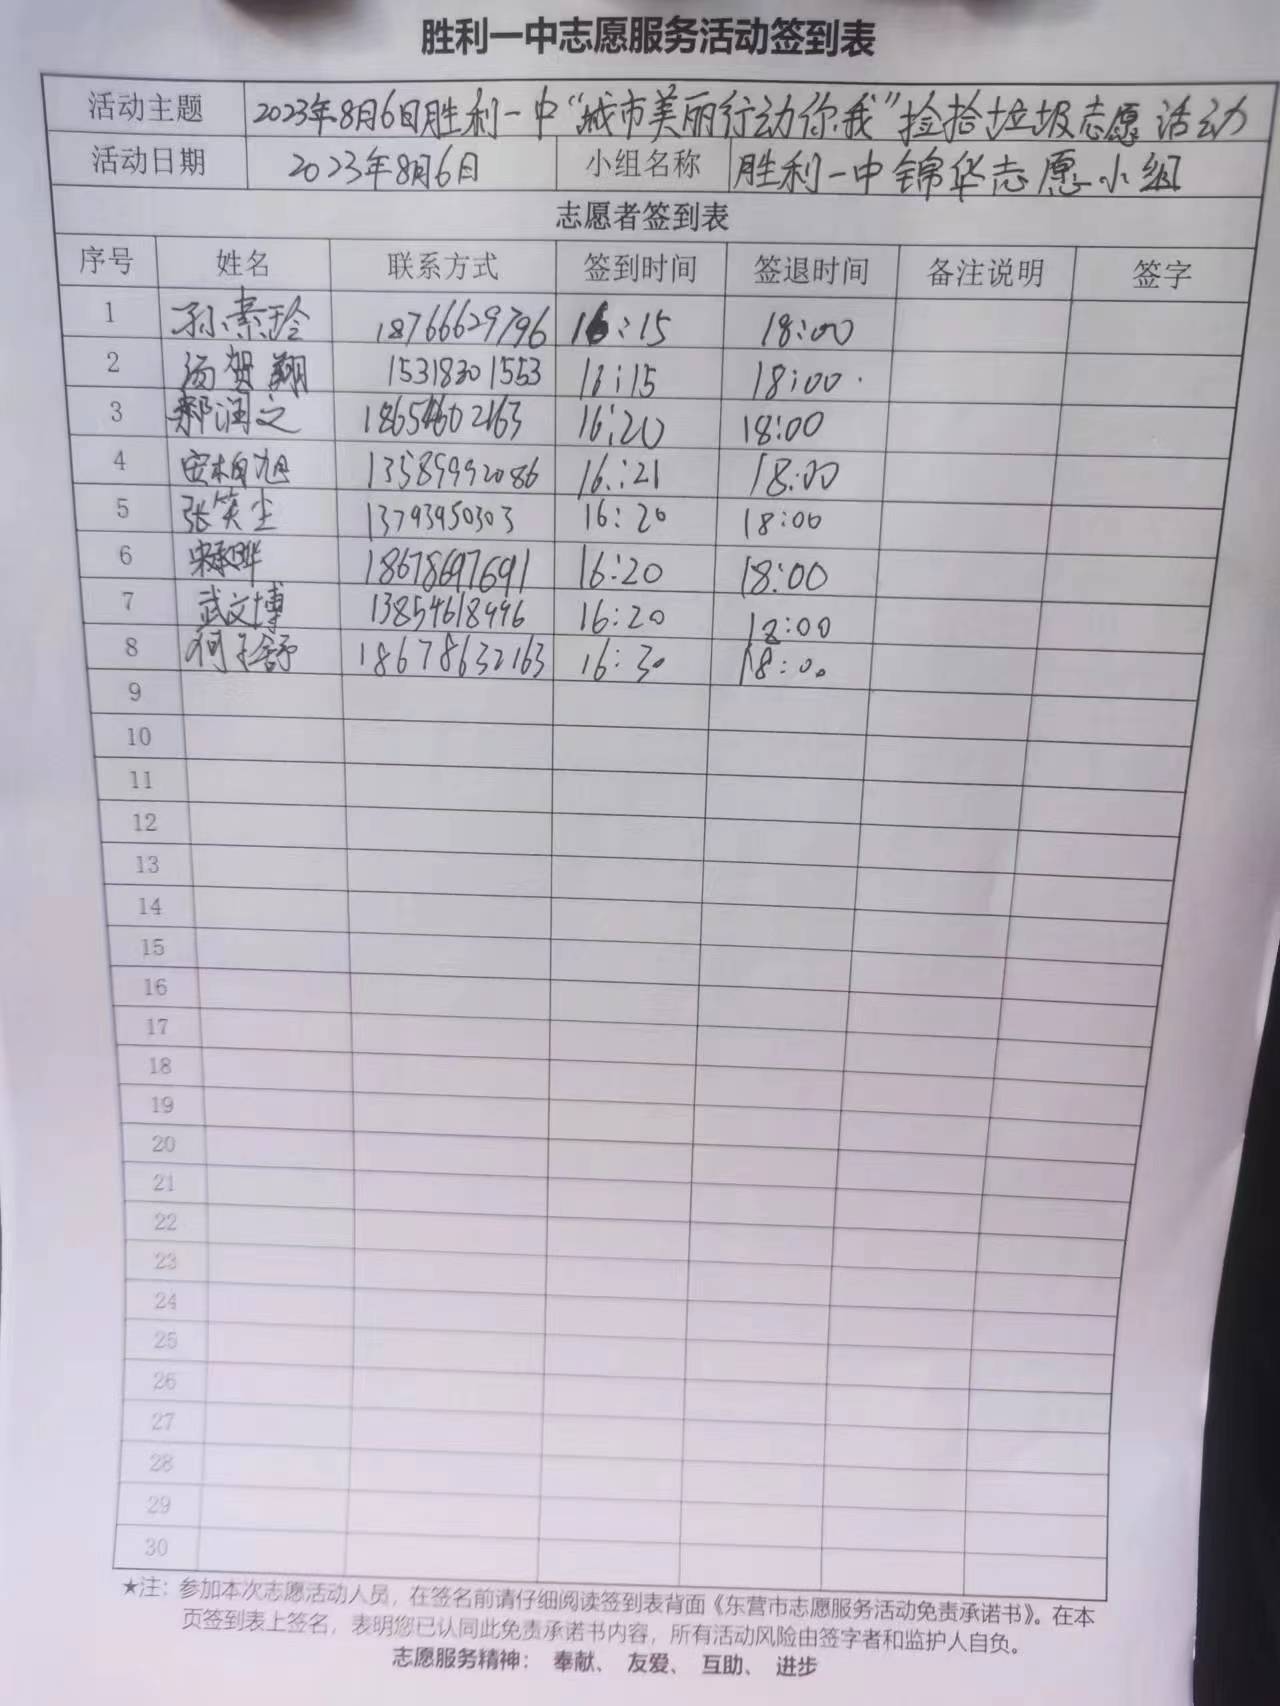 胜利一中志愿服务活动签到表
活动主题 2023年8月6日胜利一中“城市美丽行动你我”捡拾垃圾志愿活动
活动日期 2023年8月6日 小组名称 胜利一中锦华志愿小组
志愿者签到表
序号 姓名 联系方式 签到时间 签退时间 备注说明 签字
1 孙素玲 18766629796 16:15 18:00
2 汤贺翔 15318301553 16:15 18:00
3 郝润之 18654602163 16:20 18:00
4 安柏旭 13589992086 16:21 18:00
5 张笑尘 13793950303 16:20 18:00
6 18678697691 16:20 18:00
7 武文博 13854618996 16:20 18:00
8 18678632163 16:30 18:00
9
10
11
12
13
14
15
16
17
18
19
20
21
22
23
24
25
26
27
28
29
30
★注：参加本次志愿活动人员，在签名前请仔细阅读签到表背面《东营市志愿服务活动免责承诺书》。在本
页签到表上签名，表明您已认同此免责承诺书内容，所有活动风险由签字者和监护人自负。
志愿服务精神： 奉献、 友爱、 互助、 进步